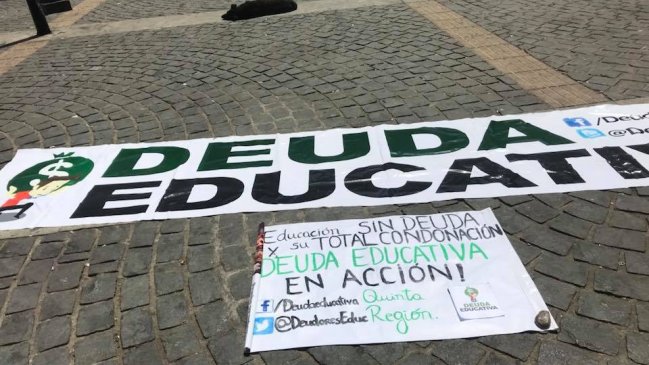 DEUDA
EDUCATIVA
/Deuda
@De
Educación SIN DEUDA
x su TOTAL CONDONACIÓN
DEUDA EDUCATIVA
EN ACCIÓN!
/Deudaeducativa Quinta
@DeudoresEduc Región.
DEUDA
EDUCATIVA